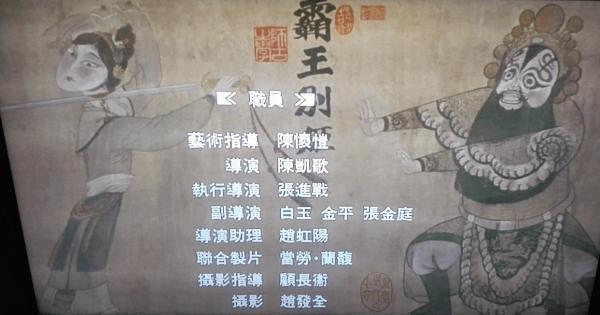 霸王別姬
≪ 職員 ≫
藝術指導 陳懷愷
導演 陳凱歌
執行導演 張進戰
副導演 白玉 金平 張金庭
導演助理 趙虹陽
聯合製片 當勞·蘭馥
攝影指導 顧長衛
攝影 趙發全